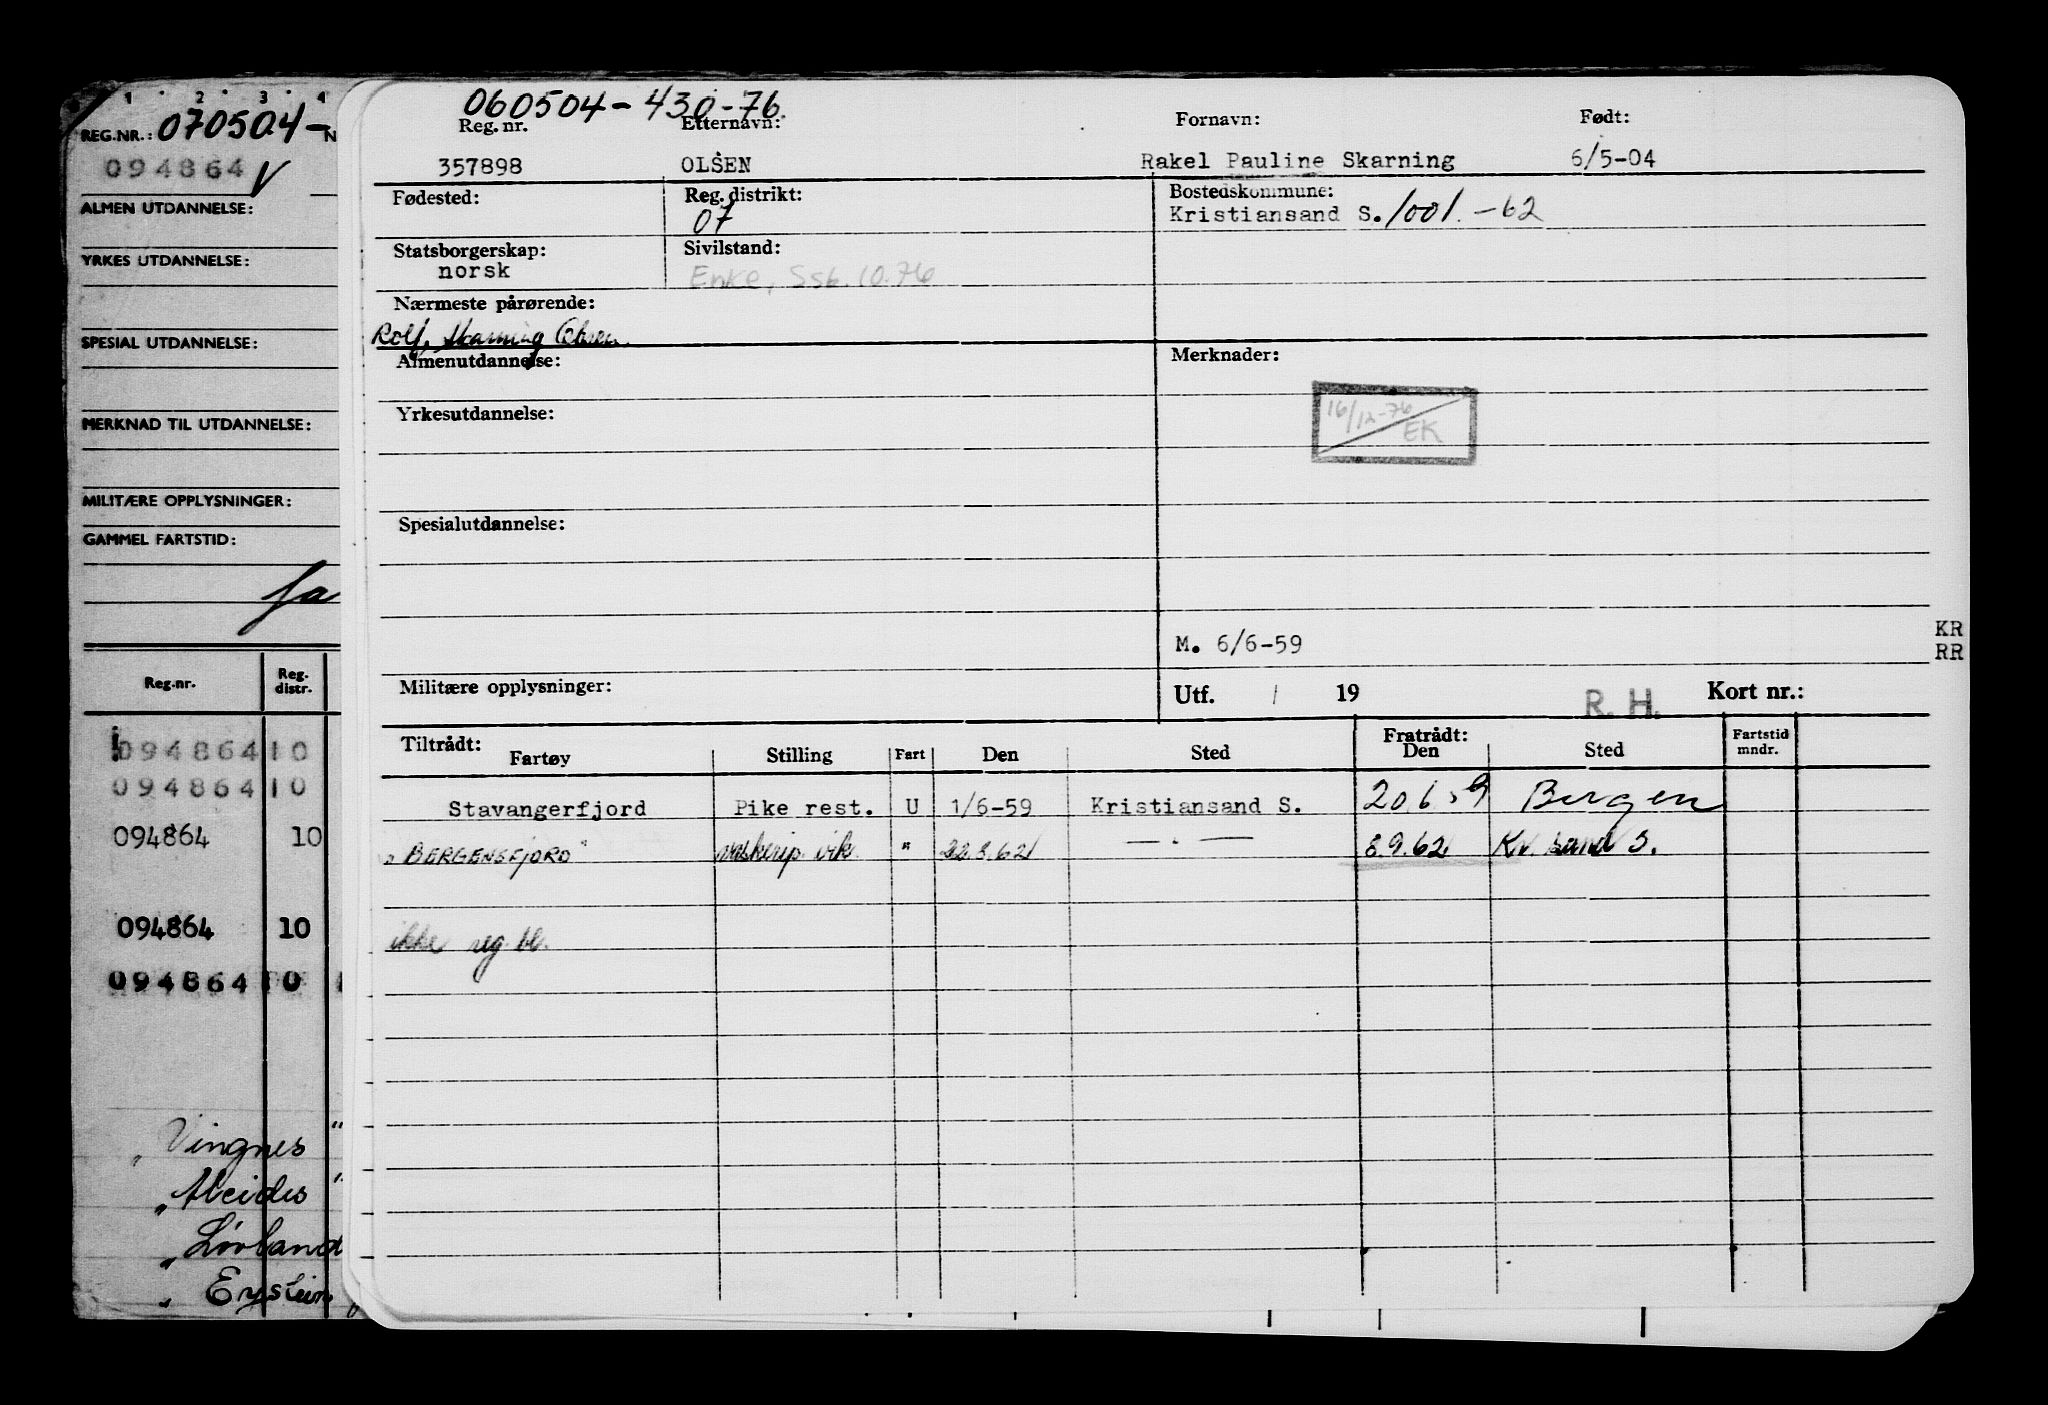 1 2 3 4
REG.NR.: 070504- N
094864 V
ALMEN UTDANNELSE:
YRKES UTDANNELSE:
SPESIAL UTDANNELSE:
MERKNAD TIL UTDANNELSE:
MILITÆRE OPPLYSNINGER:
GAMMEL FARTSTID:
Ja
Reg-nr. Reg. distr.
094864 10
094864 10
094864 10
094864 10
094864 10
„Vingnes"
„Aleides"
„Lövland
„Eystein
060504-430-76.
Reg. nr. Etternavn: Fornavn: Født:
357898 OLSEN Rakel Pauline Skarning 6/5-04
Fødested: Reg. distrikt: Bostedskommune:
07 Kristiansand S. 1001.-62
Statsborgerskap: Sivilstand:
norsk Enke, Ssb. 10.76
Nærmeste pårørende:
Rolf Skarning Olsen
Almenutdannelse: Merknader:
16/12-76 EK
Yrkesutdannelse:
Spesialutdannelse:
M. 6/6-59
KR
RR
Militære opplysninger: Utf. / 19 R. H. Kort nr.:
Tiltrådt: Fratrådt: Fartstid
Fartøy Stilling Fart Den Sted Den Sted mndr.
Stavangerfjord Pike rest. U 1/6-59 Kristiansand S. 20.6.59 Bergen
„BERGENSFJORD" vik. " 22.8.62 — " — 8.9.62 Kr.sand S.
ikke reg. bl.